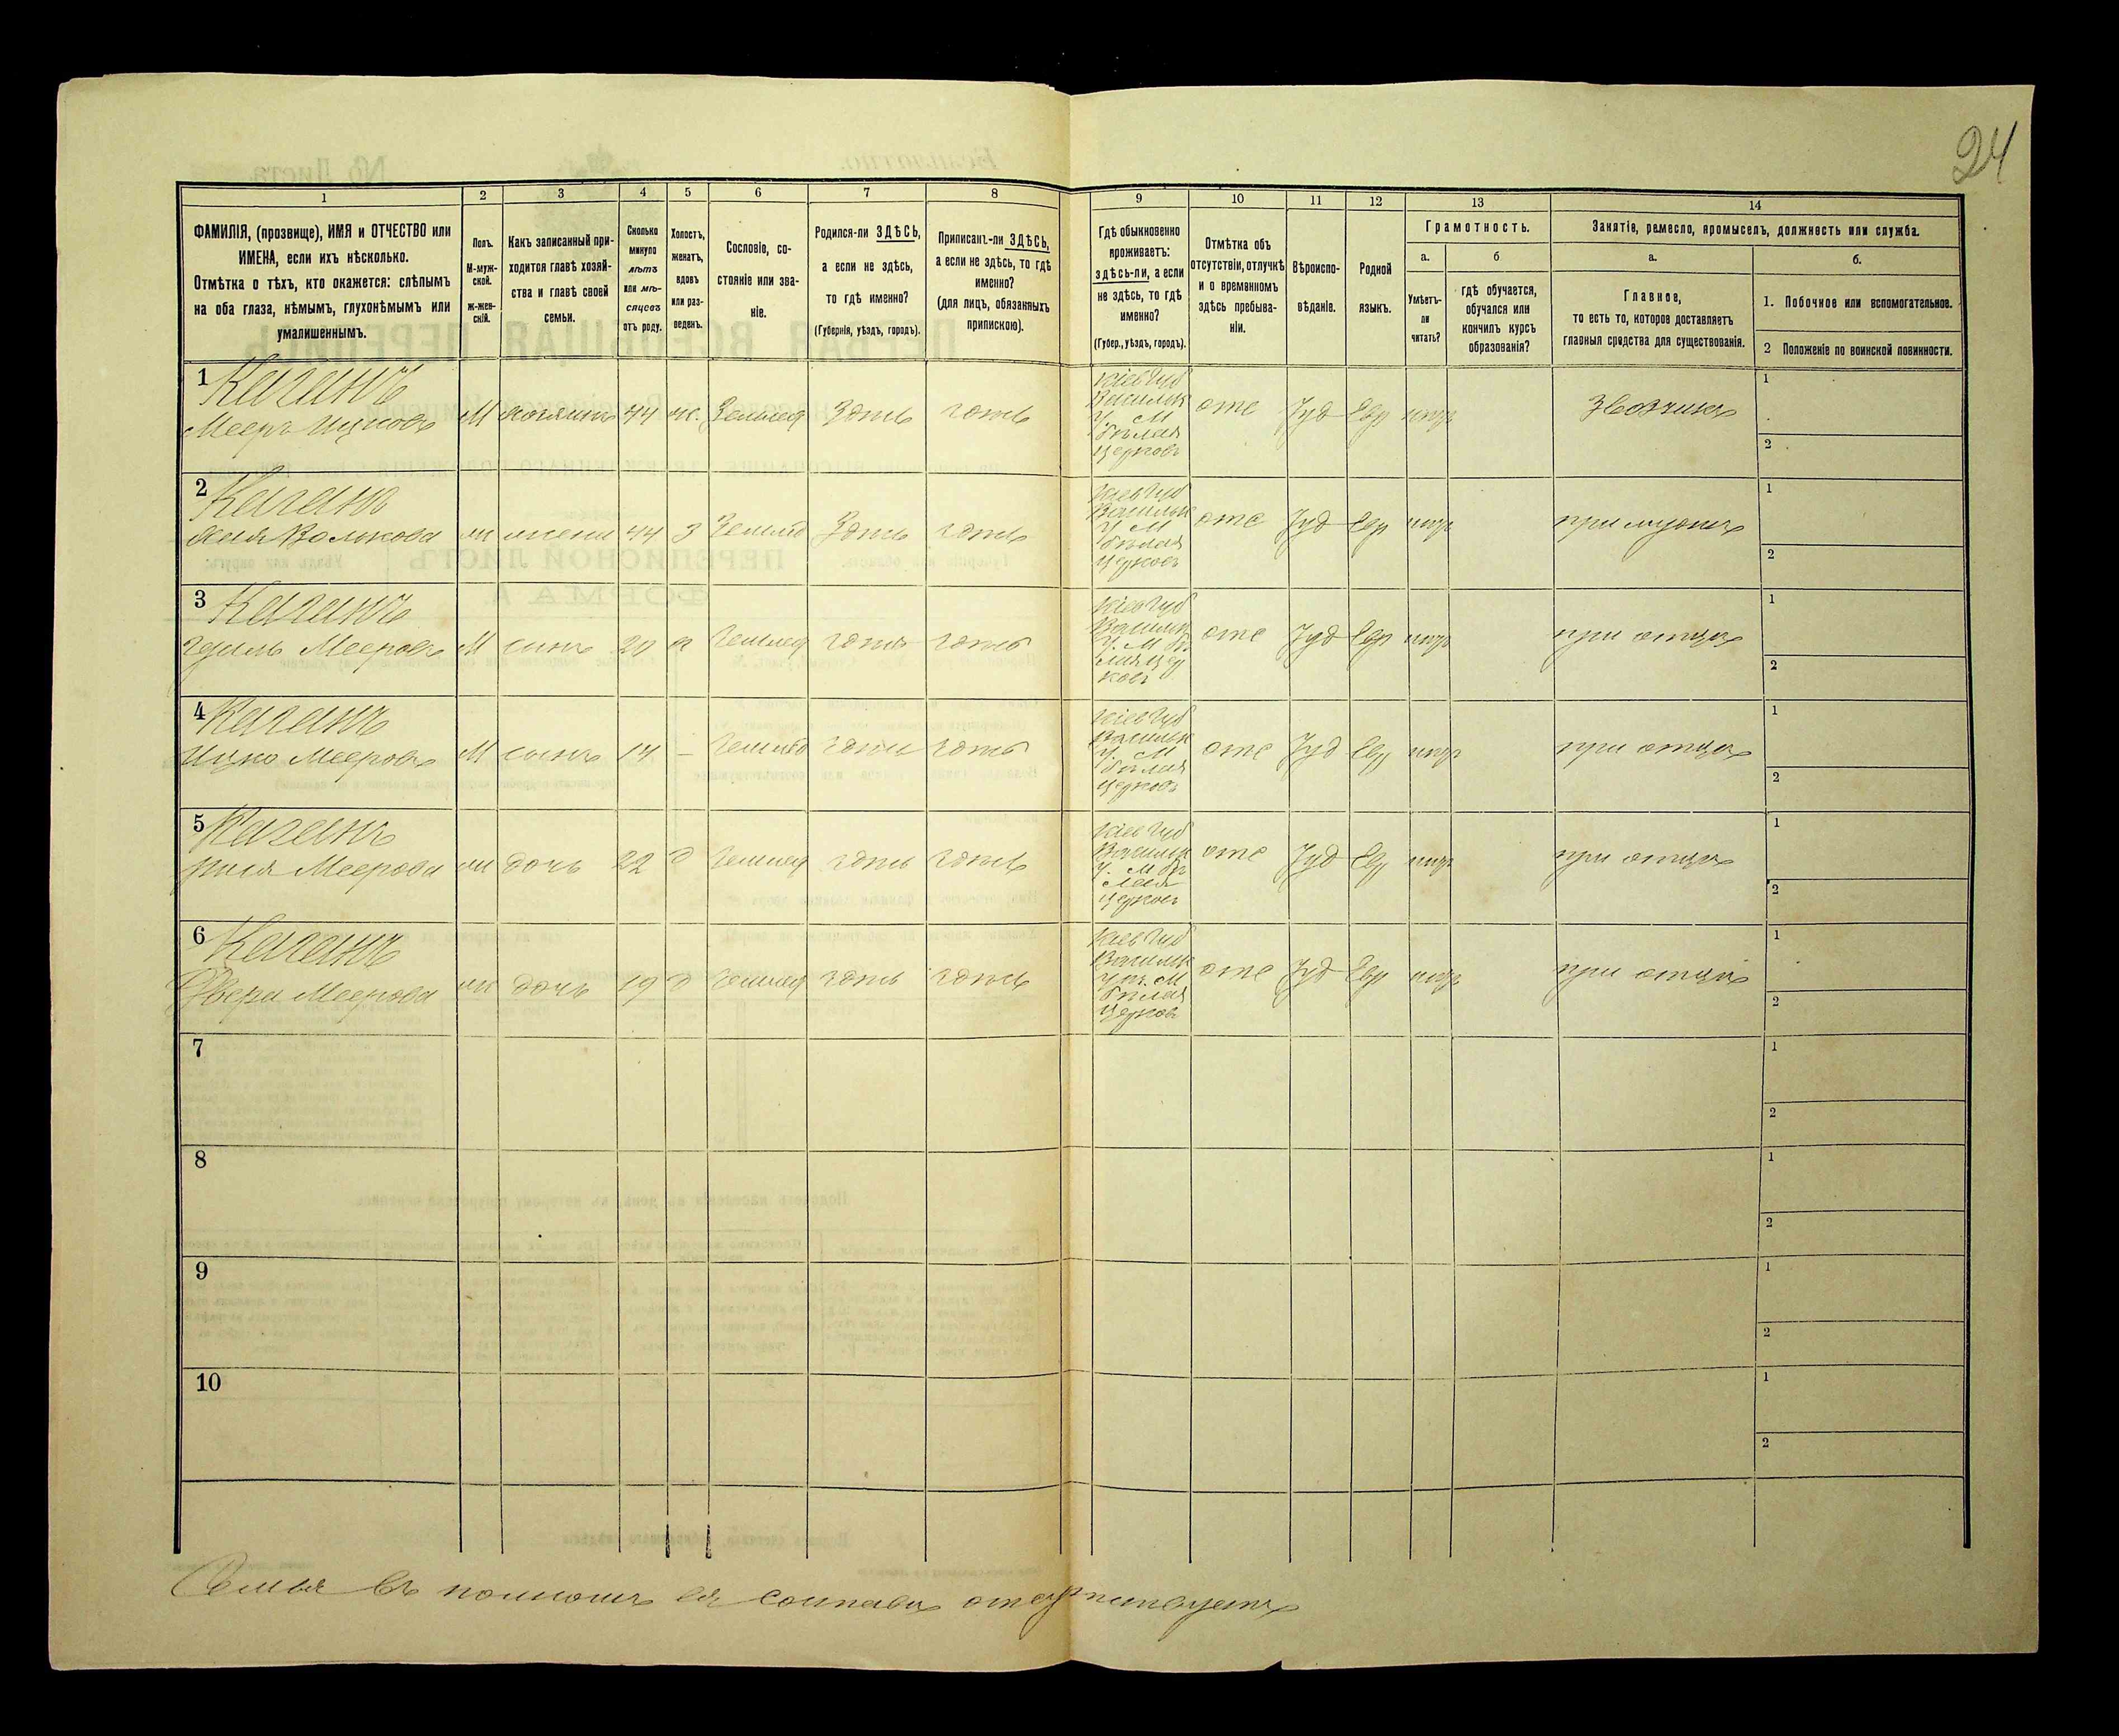 24
1
2
3
4
5
6
7
8
9
10
11
12
13
14
ФАМИЛІЯ, (прозвище), ИМЯ и ОТЧЕСТВО или
ИМЕНА, если ихъ нѣсколько.
Отмѣтка о тѣхъ, кто окажется: слѣпымъ
на оба глаза, нѣмымъ, глухонѣмымъ или
умалишеннымъ.
Полъ.
М-муж-
ской.
Ж-жен-
скій.
Какъ записанный при-
ходится главѣ хозяй-
ства и главѣ своей
семьи.
Сколько
минуло
лѣтъ
или мѣ-
сяцевъ
отъ роду.
Холостъ,
женатъ,
вдовъ
или раз-
веденъ.
Сословіе, со-
стояніе или зва-
ніе.
Родился-ли ЗДѢСЬ,
а если не здѣсь,
то гдѣ именно?
(Губернія, уѣздъ, городъ).
Приписанъ-ли ЗДѢСЬ,
а если не здѣсь, то гдѣ
именно?
(для лицъ, обязанныхъ
припискою).
Гдѣ обыкновенно
проживаетъ:
здѣсь-ли, а если
не здѣсь, то гдѣ
именно?
(Губер., уѣздъ, городъ).
Отмѣтка объ
отсутствіи, отлучкѣ
и о временномъ
здѣсь пребыва-
ніи.
Вѣроиспо-
вѣданіе.
Родной
языкъ.
Грамотность.
а.
б
Умѣетъ-
ли
читать?
гдѣ обучается,
обучался или
кончилъ курсъ
образованія?
Занятіе, ремесло, промыселъ, должность или служба.
а.
б.
Главное,
то есть то, которое доставляетъ
главныя средства для существованія.
1. Побочное или вспомогательное.
2 Положеніе по воинской повинности.
1 Каганъ
Мееръ Ицковъ М хозяинъ 44 ж. Землед Здѣсь здѣсь
Кіев Губ
Васильк
у. М
Бѣлая
Церковь
отс Іуд Евр
1
2
2 Каганъ
Волькова жена 44 З Землед Здѣсь здѣсь
Кіев Губ
Васильк
у. М
Бѣлая
Церковь
отс Іуд Евр при мужѣ
1
2
3 Каганъ
Мееровъ М сынъ 20 Землед здѣсь здѣсь
Кіев Губ
Васильк
у. М Бѣ
лая Цер
ковь
отс Іуд Евр при отцѣ
1
2
4 Каганъ
Ицко Мееровъ М сынъ 14 – Землед здѣсь здѣсь
Кіев Губ
Васильк
у. М
Бѣлая
Церковь
отс Іуд Евр при отцѣ
1
2
5 Каганъ
Меерова дочь 22 д Землед здѣсь здѣсь
Кіев Губ
Васильк
у. М Бѣ
лая
Церковь
отс Іуд Евр при отцѣ
1
2
6 Каганъ
Двера Меерова дочь 19 д Землед здѣсь здѣсь
Кіев Губ
Васильк
М
Бѣлая
Церковь
отс Іуд Евр при отцѣ
1
2
7
1
2
8
1
2
9
1
2
10
1
2
Семья въ полномъ ея составѣ отсутствуетъ